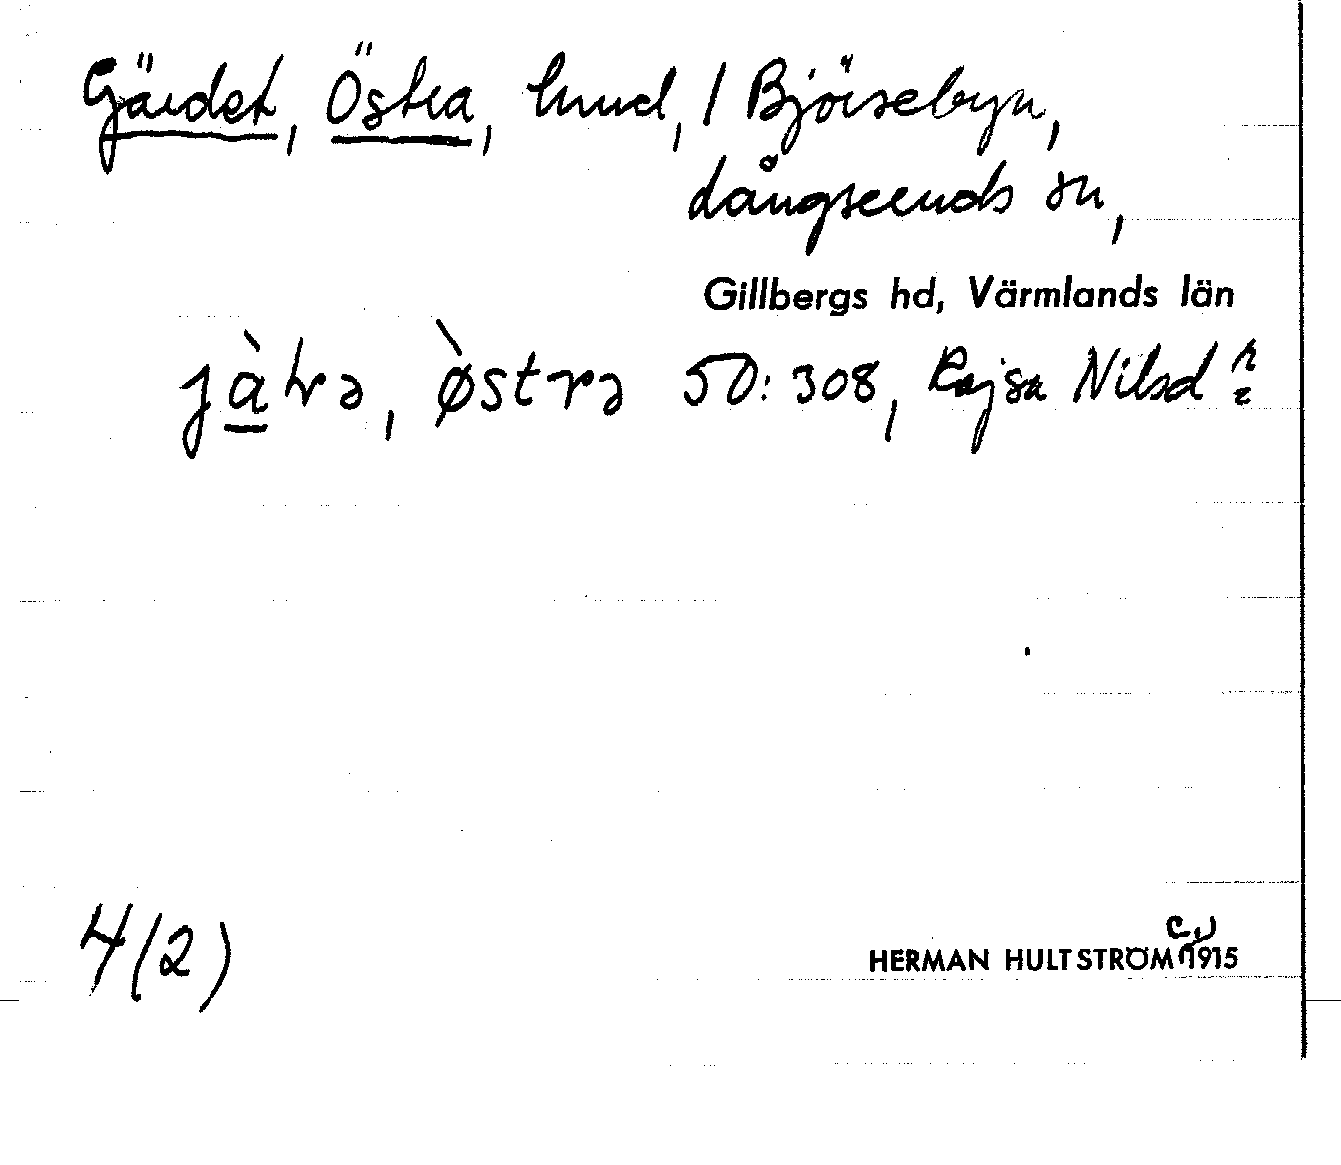 Gärdet, Östra, hmd, / Björsebyn,
Långseruds sn,
Gillbergs hd, Värmlands län
jàtrə, òstrə 50: 308, Kajsa Nilsd
4(2)
HERMAN HULTSTRÖM 1915